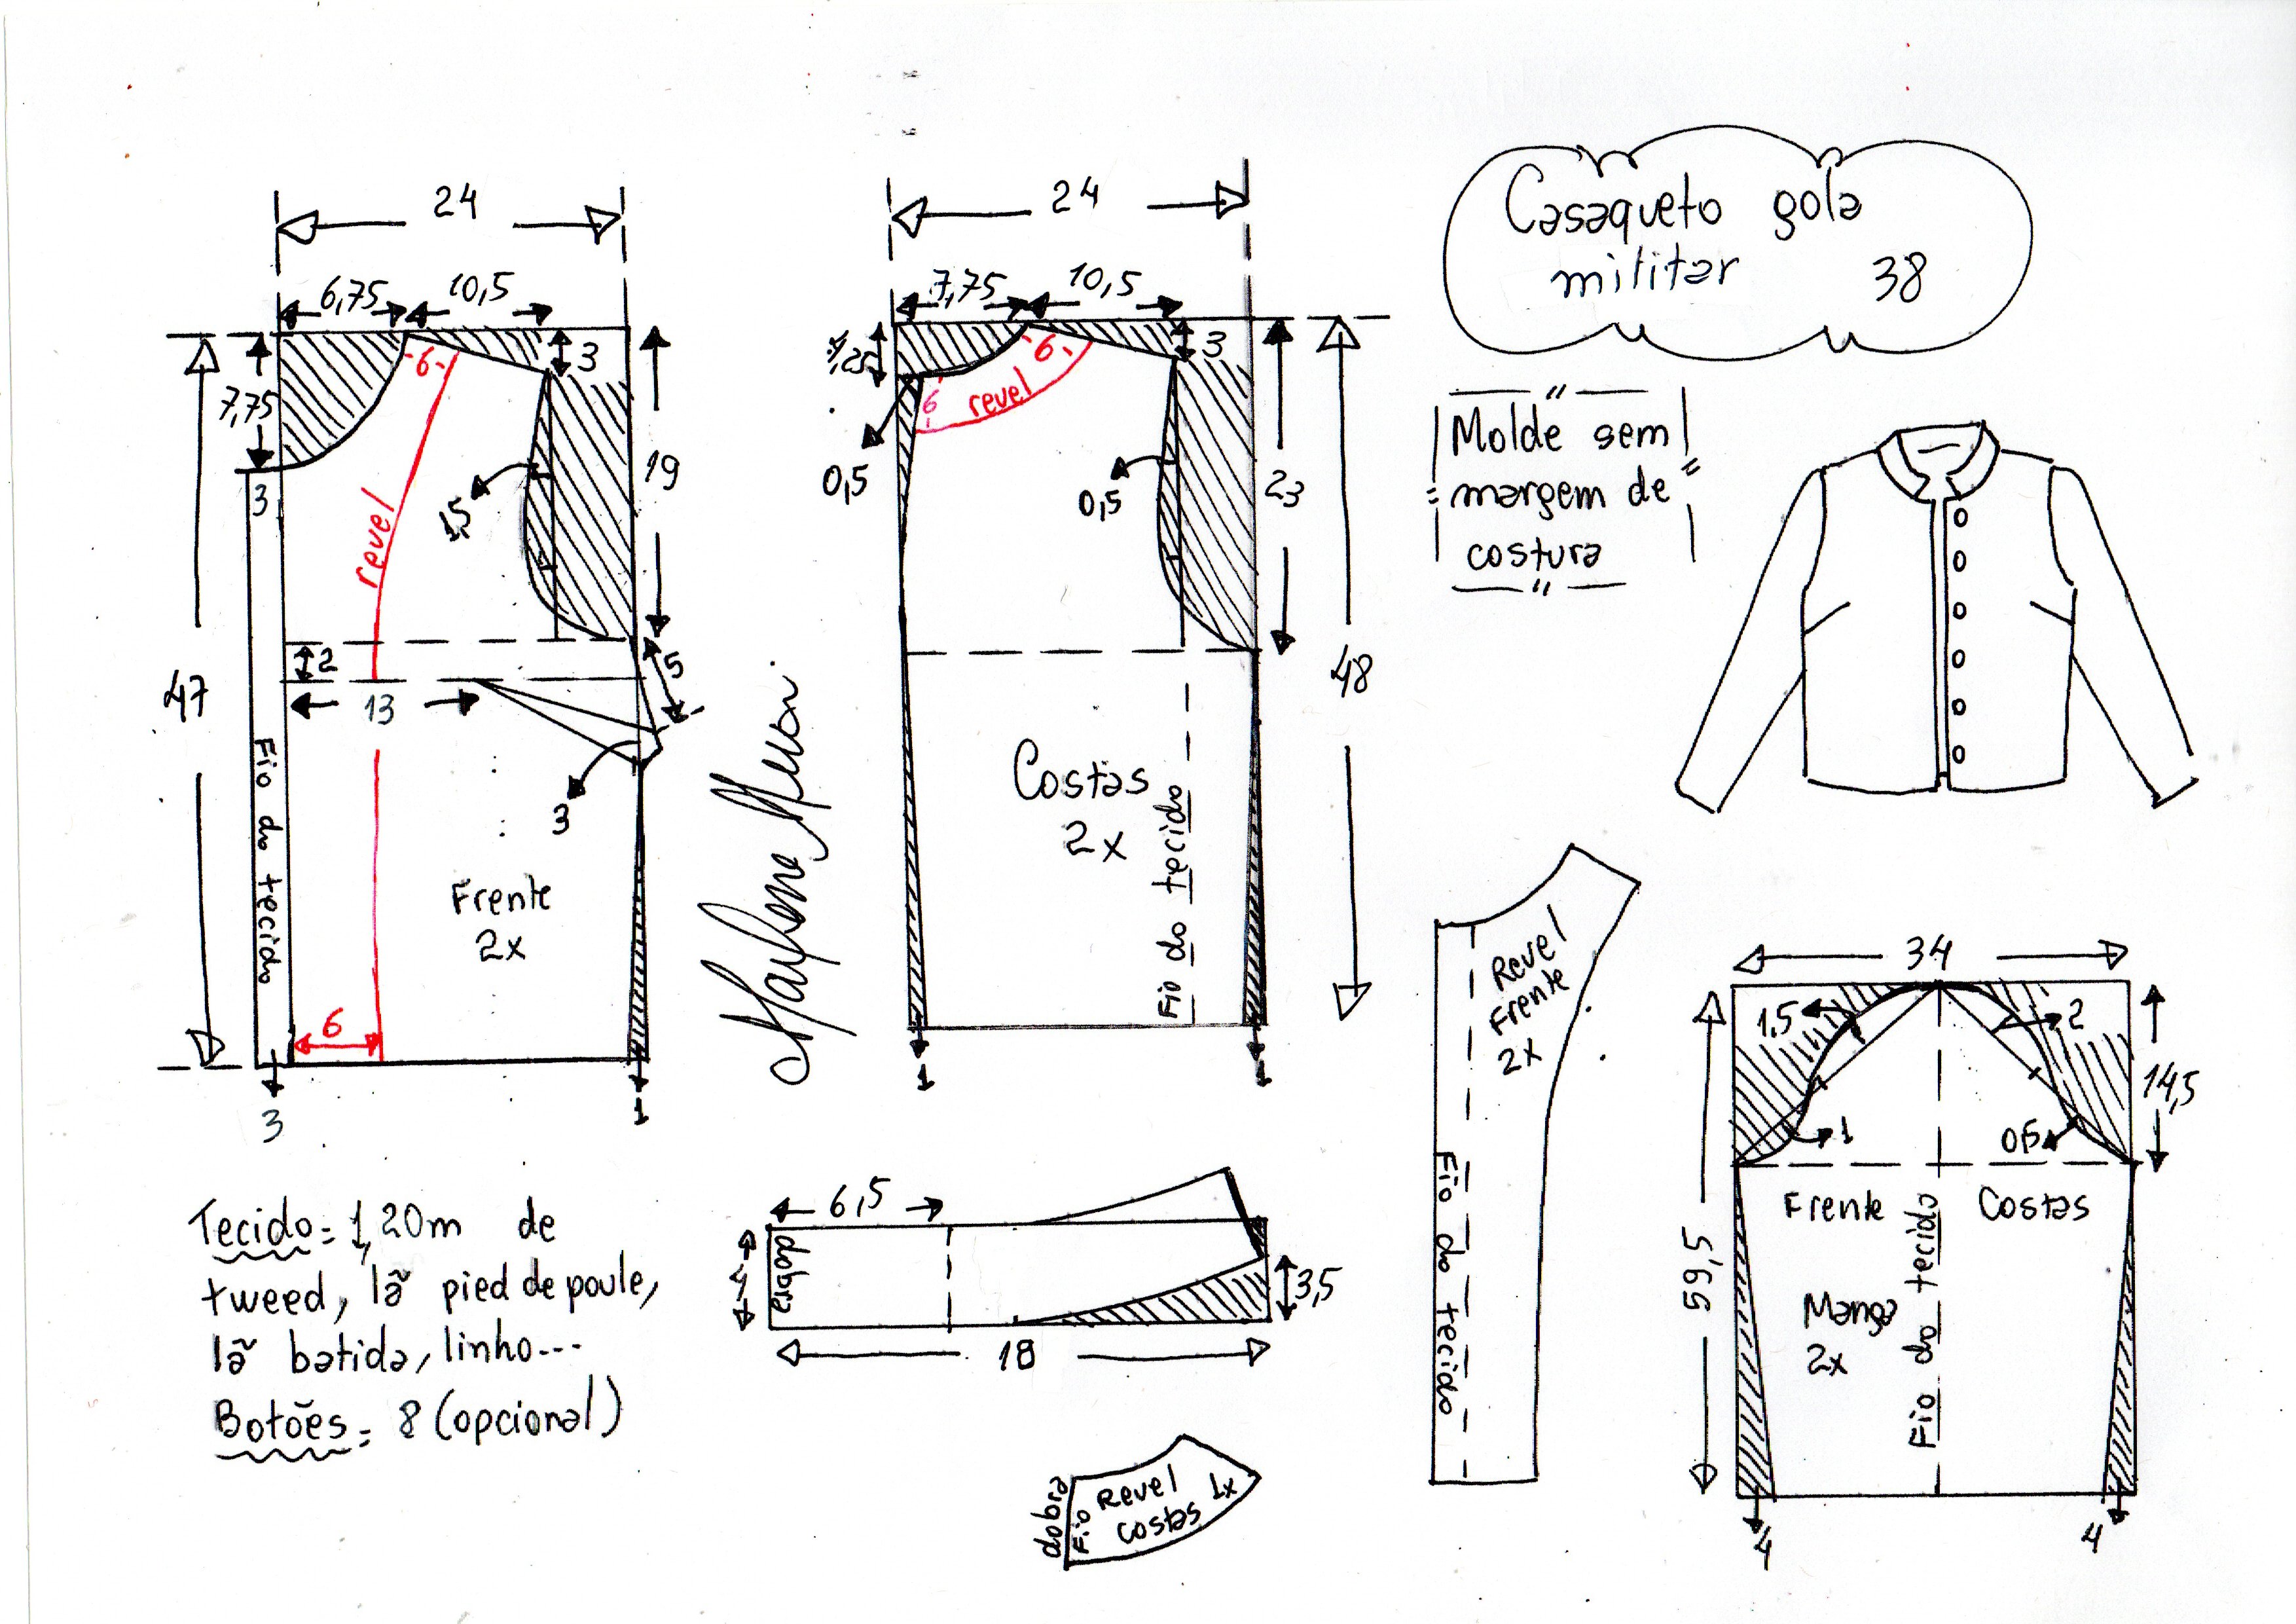 Casaqueto gola
militar 38
Molde sem
margem de
costura
24
6,75
10,5
3
7,75
6
3
revel
1,5
1
19
2
5
13
47
3
Fio do tecido
Frente
2x
6
3
1
24
7,75
10,5
3
6
6
revel
0,5
0,5
23
48
Costas
2x
Fio do tecido
1
1
Tecido = 1,20m de
tweed, lã pied de poule,
lã batida, linho...
Botões = 8 (opcional)
6,5
4
dobra
3,5
18
dobra
Fio
Revel
costas 1x
Revel
Frente
2x
Fio do tecido
34
1,5
2
14,5
1
0,5
59,5
Frente
Costas
Manga
2x
Fio do tecido
4
4